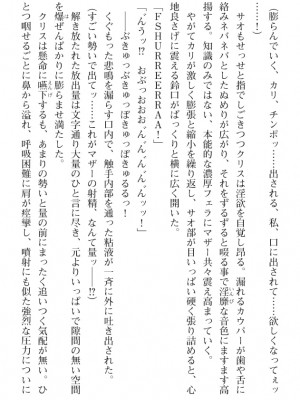 (膨らんでいく、カリ、チンポッ……出される、私、口に出されて……欲しくなってェッ)
サオもせっせと指でしごきつつクリスは淫欲を自覚し昂る。漏れるカウパーが歯や舌に
絡みネバネバとしたぬめりが広がり、それをずるずると啜る事で淫靡な音色にますます高
揚する。知識のみではない、本能的な濃厚フェラにマザー共々震え高まっていく。
やがてカリが激しく膨張と縮小を繰り返し、サオ部が目いっぱい硬く張り詰めると、心
地良さげに震える鈴口がぱっくりと横に開く。
「FSHURREEERRAA!」
「んうッ?! おぶっおおおんんんんんッッ!」
――ぶきゅっぷきゅぽきゅるるっ!
くぐもった悲鳴を漏らす口内で、触手内部を通った粘液が一斉に外に吐き出された。
(すごい勢いで出てッ……これがマザーの射精、なんて量ッ――!?)
解き放たれた放出量は文字通り大量のひと言に尽き、元よりいっぱいで隙間の無い空間
を爆ぜんばかりに膨らませ満たした。
クリスは懸命に嚥下するも、あまりの勢いと量の前にまったく追いつく気配が無い。ひ
とつ咽せるごとに鼻から溢れ、呼吸困難に肩が痙攣し、噴射にも似た強烈な圧力についに